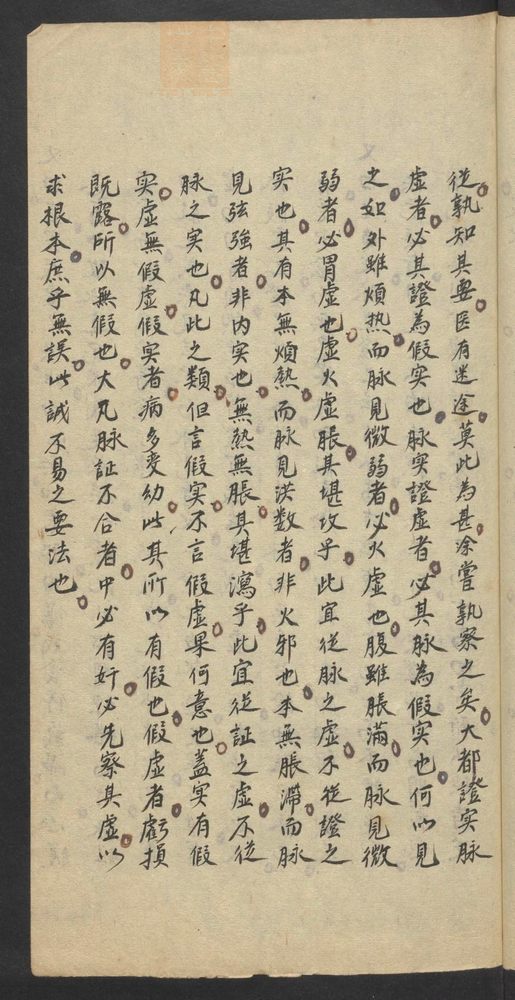 從孰知其要医有迷途莫此為甚余嘗熟察之矣大都證实脉
虚者必其證為假实也脉实證虚者必其脉為假实也何以見
之如外雖煩热而脉見微弱者必火虚也腹雖脹滿而脉見微
弱者必胃虚也虚火虚脹其堪攻乎此宜從脉之虚不從證之
实也其有本無煩熱而脉見洪数者非火邪也本無脹滯而脉
見弦強者非内实也無熱無脹其堪瀉乎此宜從証之虚不從
脉之实也凡此之類但言假实不言假虚果何意也盖实有假
实虚無假虚假实者病多变幻此其所以有假也假虚者虧損
既露所以無假也大凡脉証不合者中必有奸必先察其虚以
求根本庶乎無誤此誠不易之要法也